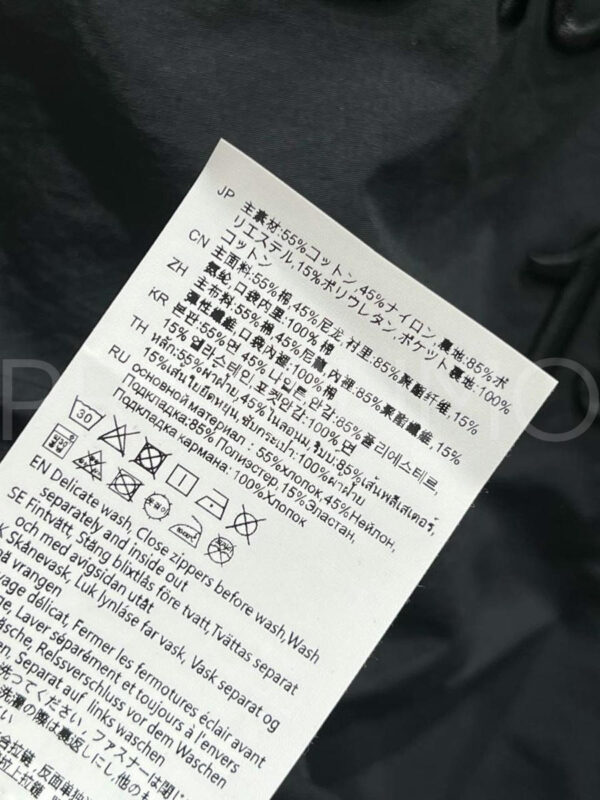 JP 主素材:55%コットン,45%ナイロン,裏地:85%ポ
リエステル,15%ポリウレタン,ポケット裏地:100%
コットン
CN 主面料:55%棉,45%尼龙,衬里:85%聚酯纤维,15%
氨纶,口袋内里:100%棉
ZH 主布料:55%棉,45%尼龍,內裡:85%聚酯纖維,15%
彈性纖維,口袋內裡:100%棉
KR 본판:55%면 45% 나일론 안감:85%폴리에스테르,
15% 엘라스테인,포켓안감:100% 면
TH หลัก:55%ผ้าฝ้าย,45%ไนลอน,ใยบุ:85%เส้นพลีเสเตอร์,
15%เส้นใยยืดหยุ่น,ซับกระเป๋า:100%ผ้าฝ้าย
RU основной материал : 55%хлопок,45%Нейлон,
Подкладка:85% Полиэстер,15%Эластан,
Подкладка кармана: 100%Хлопок
30
EN Delicate wash, Close zippers before wash,Wash
separately and inside out
SE Fintvätt, Stäng blixtlås före tvatt,Tvättas separat
och med avigsidan utåt
K Skånevask, Luk lynlåse før vask, Vask separat og
vrangen
vage délicat, Fermer les fermetures éclair avant
ge, Laver séparément et toujours à l'envers
äsche, Reissverschluss vor dem Waschen
en, Separat auf links waschen
洗ってください, ファスナーは閉じ
洗濯の際は裏返しにし,他のも
い
合拉链,反面单独
拉上拉鏈